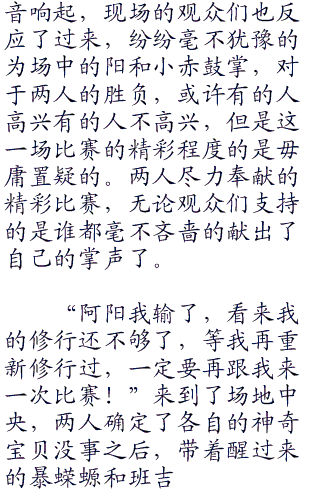 音响起，现场的观众们也反
应了过来，纷纷毫不犹豫的
为场中的阳和小赤鼓掌，对
于两人的胜负，或许有的人
高兴有的人不高兴，但是这
一场比赛的精彩程度的是毋
庸置疑的。两人尽力奉献的
精彩比赛，无论观众们支持
的是谁都毫不吝啬的献出了
自己的掌声了。
“阿阳我输了，看来我
的修行还不够了，等我再重
新修行过，一定要再跟我来
一次比赛！”来到了场地中
央，两人确定了各自的神奇
宝贝没事之后，带着醒过来
的暴蝾螈和班吉